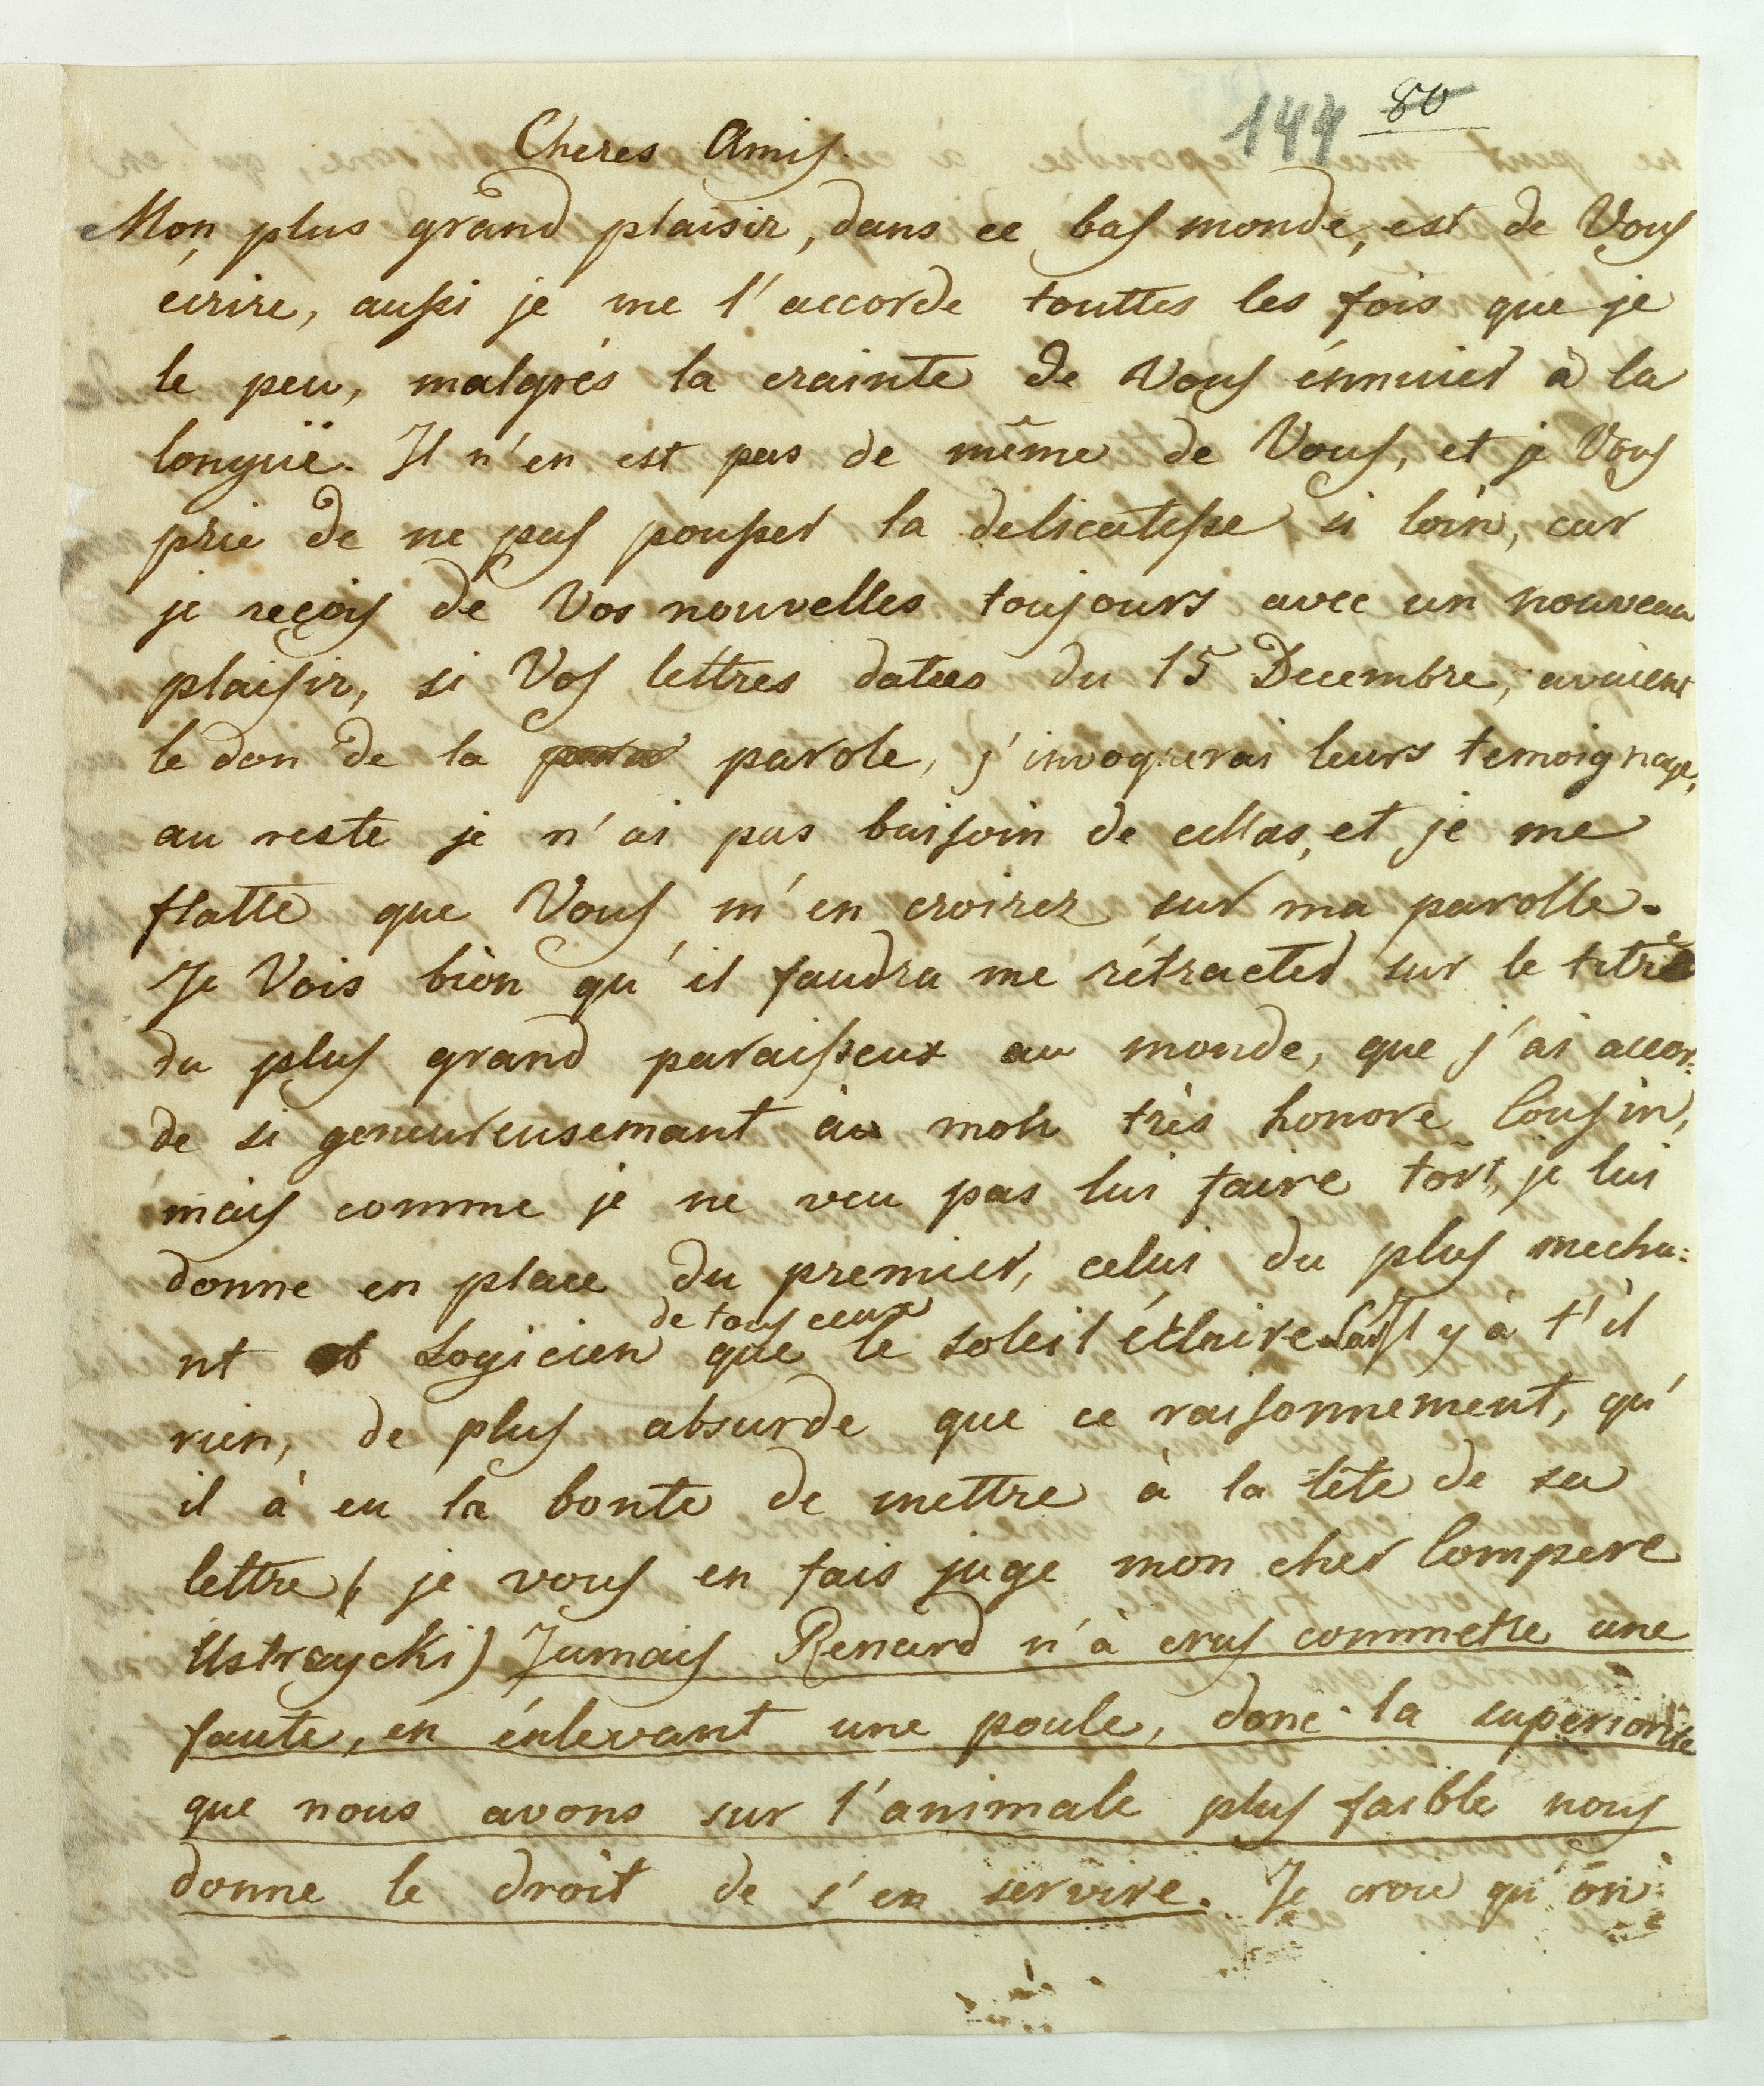 144 80
Cheres Amis.
Mon plus grand plaisir, dans ce bas monde, est de Vous
écrire, aussi je me l'accorde touttes les fois que je
le peu, malgrés la crainte de Vous énnuier à la
longuë. Il n'en est pas de même de Vous, et je Vous
prie de ne pas pousser la delicatesse si loin, car
je reçois de Vos nouvelles toujours avec un nouveau
plaisir, si Vos lettres datees du 15 Decembre, avaient
le don de la parole, j'invoquerai leurs temoignage,
au reste je n'ai pas baisoin de cellas, et je me
flatte que Vous m'en croirez sur ma parolle.
Je Vois bien qu'il faudra me rétracter sur le titre
du plus grand paraisseux au monde, que j'ai accor:
de si genereusemant à mon très honore Cousin,
mais comme je ne veu pas lui faire tort, je lui
donne en place du premier, celui du plus mecha:
nt Logicien de tous ceux que le soleil éclaire. Car Il y à t'il
rien, de plus absurde que ce raisonnement, qu'
il à eu la bonte de mettre à la tête de sa
lettre (je vous en fais juge mon cher Compere
Ustrzycki) Jamais Renard n'à crus commettre une
faute, en énlevant une poule, donc la superiorite
que nous avons sur l'animale plus faible nous
donne le droit de s'en servire. Je croie qu'on